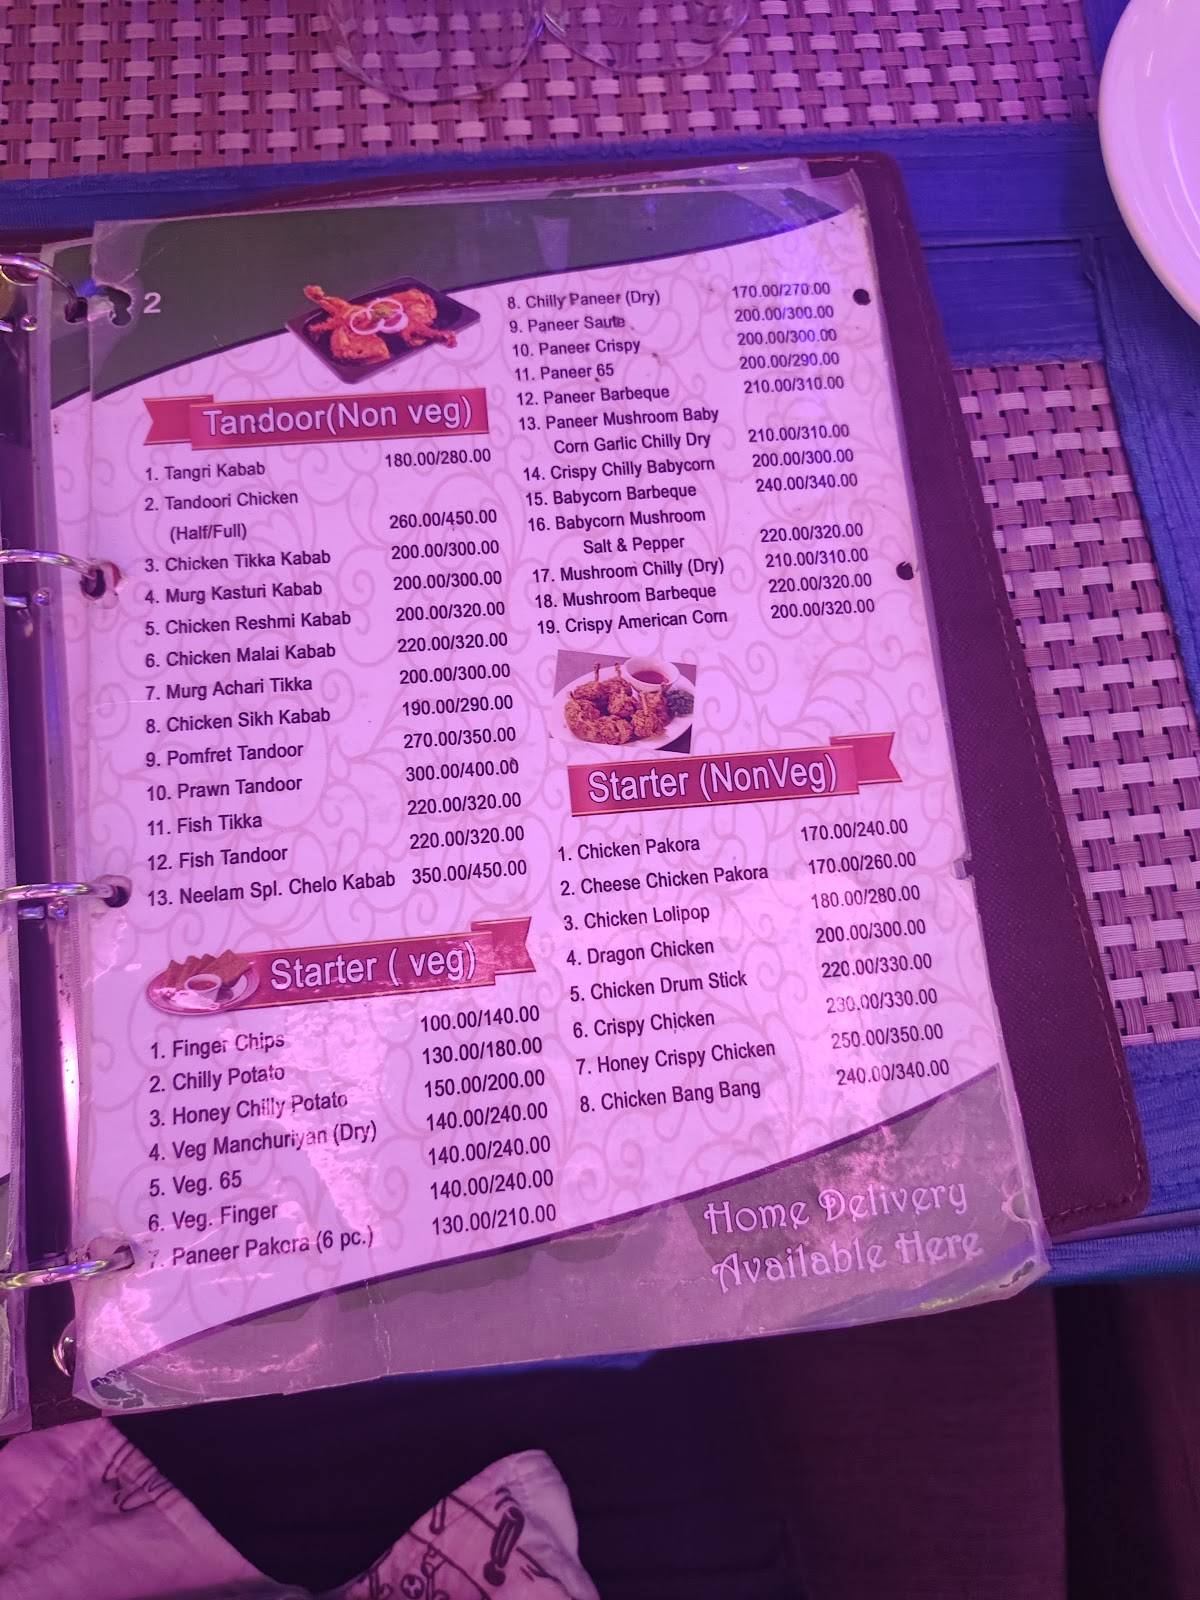 2
Tandoor(Non veg)
1. Tangri Kabab 180.00/280.00
2. Tandoori Chicken
(Half/Full) 260.00/450.00
3. Chicken Tikka Kabab 200.00/300.00
4. Murg Kasturi Kabab 200.00/300.00
5. Chicken Reshmi Kabab 200.00/320.00
6. Chicken Malai Kabab 220.00/320.00
7. Murg Achari Tikka 200.00/300.00
8. Chicken Sikh Kabab 190.00/290.00
9. Pomfret Tandoor 270.00/350.00
10. Prawn Tandoor 300.00/400.00
11. Fish Tikka 220.00/320.00
12. Fish Tandoor 220.00/320.00
13. Neelam Spl. Chelo Kabab 350.00/450.00
Starter ( veg)
1. Finger Chips 100.00/140.00
2. Chilly Potato 130.00/180.00
3. Honey Chilly Potato 150.00/200.00
4. Veg Manchuriyan (Dry) 140.00/240.00
5. Veg. 65 140.00/240.00
6. Veg. Finger 140.00/240.00
7. Paneer Pakora (6 pc.) 130.00/210.00
8. Chilly Paneer (Dry) 170.00/270.00
9. Paneer Saute 200.00/300.00
10. Paneer Crispy 200.00/300.00
11. Paneer 65 200.00/290.00
12. Paneer Barbeque 210.00/310.00
13. Paneer Mushroom Baby
Corn Garlic Chilly Dry 210.00/310.00
14. Crispy Chilly Babycorn 200.00/300.00
15. Babycorn Barbeque 240.00/340.00
16. Babycorn Mushroom
Salt & Pepper 220.00/320.00
17. Mushroom Chilly (Dry) 210.00/310.00
18. Mushroom Barbeque 220.00/320.00
19. Crispy American Corn 200.00/320.00
Starter (NonVeg)
1. Chicken Pakora 170.00/240.00
2. Cheese Chicken Pakora 170.00/260.00
3. Chicken Lolipop 180.00/280.00
4. Dragon Chicken 200.00/300.00
5. Chicken Drum Stick 220.00/330.00
6. Crispy Chicken 230.00/330.00
7. Honey Crispy Chicken 250.00/350.00
8. Chicken Bang Bang 240.00/340.00
Home Delivery
Available Here